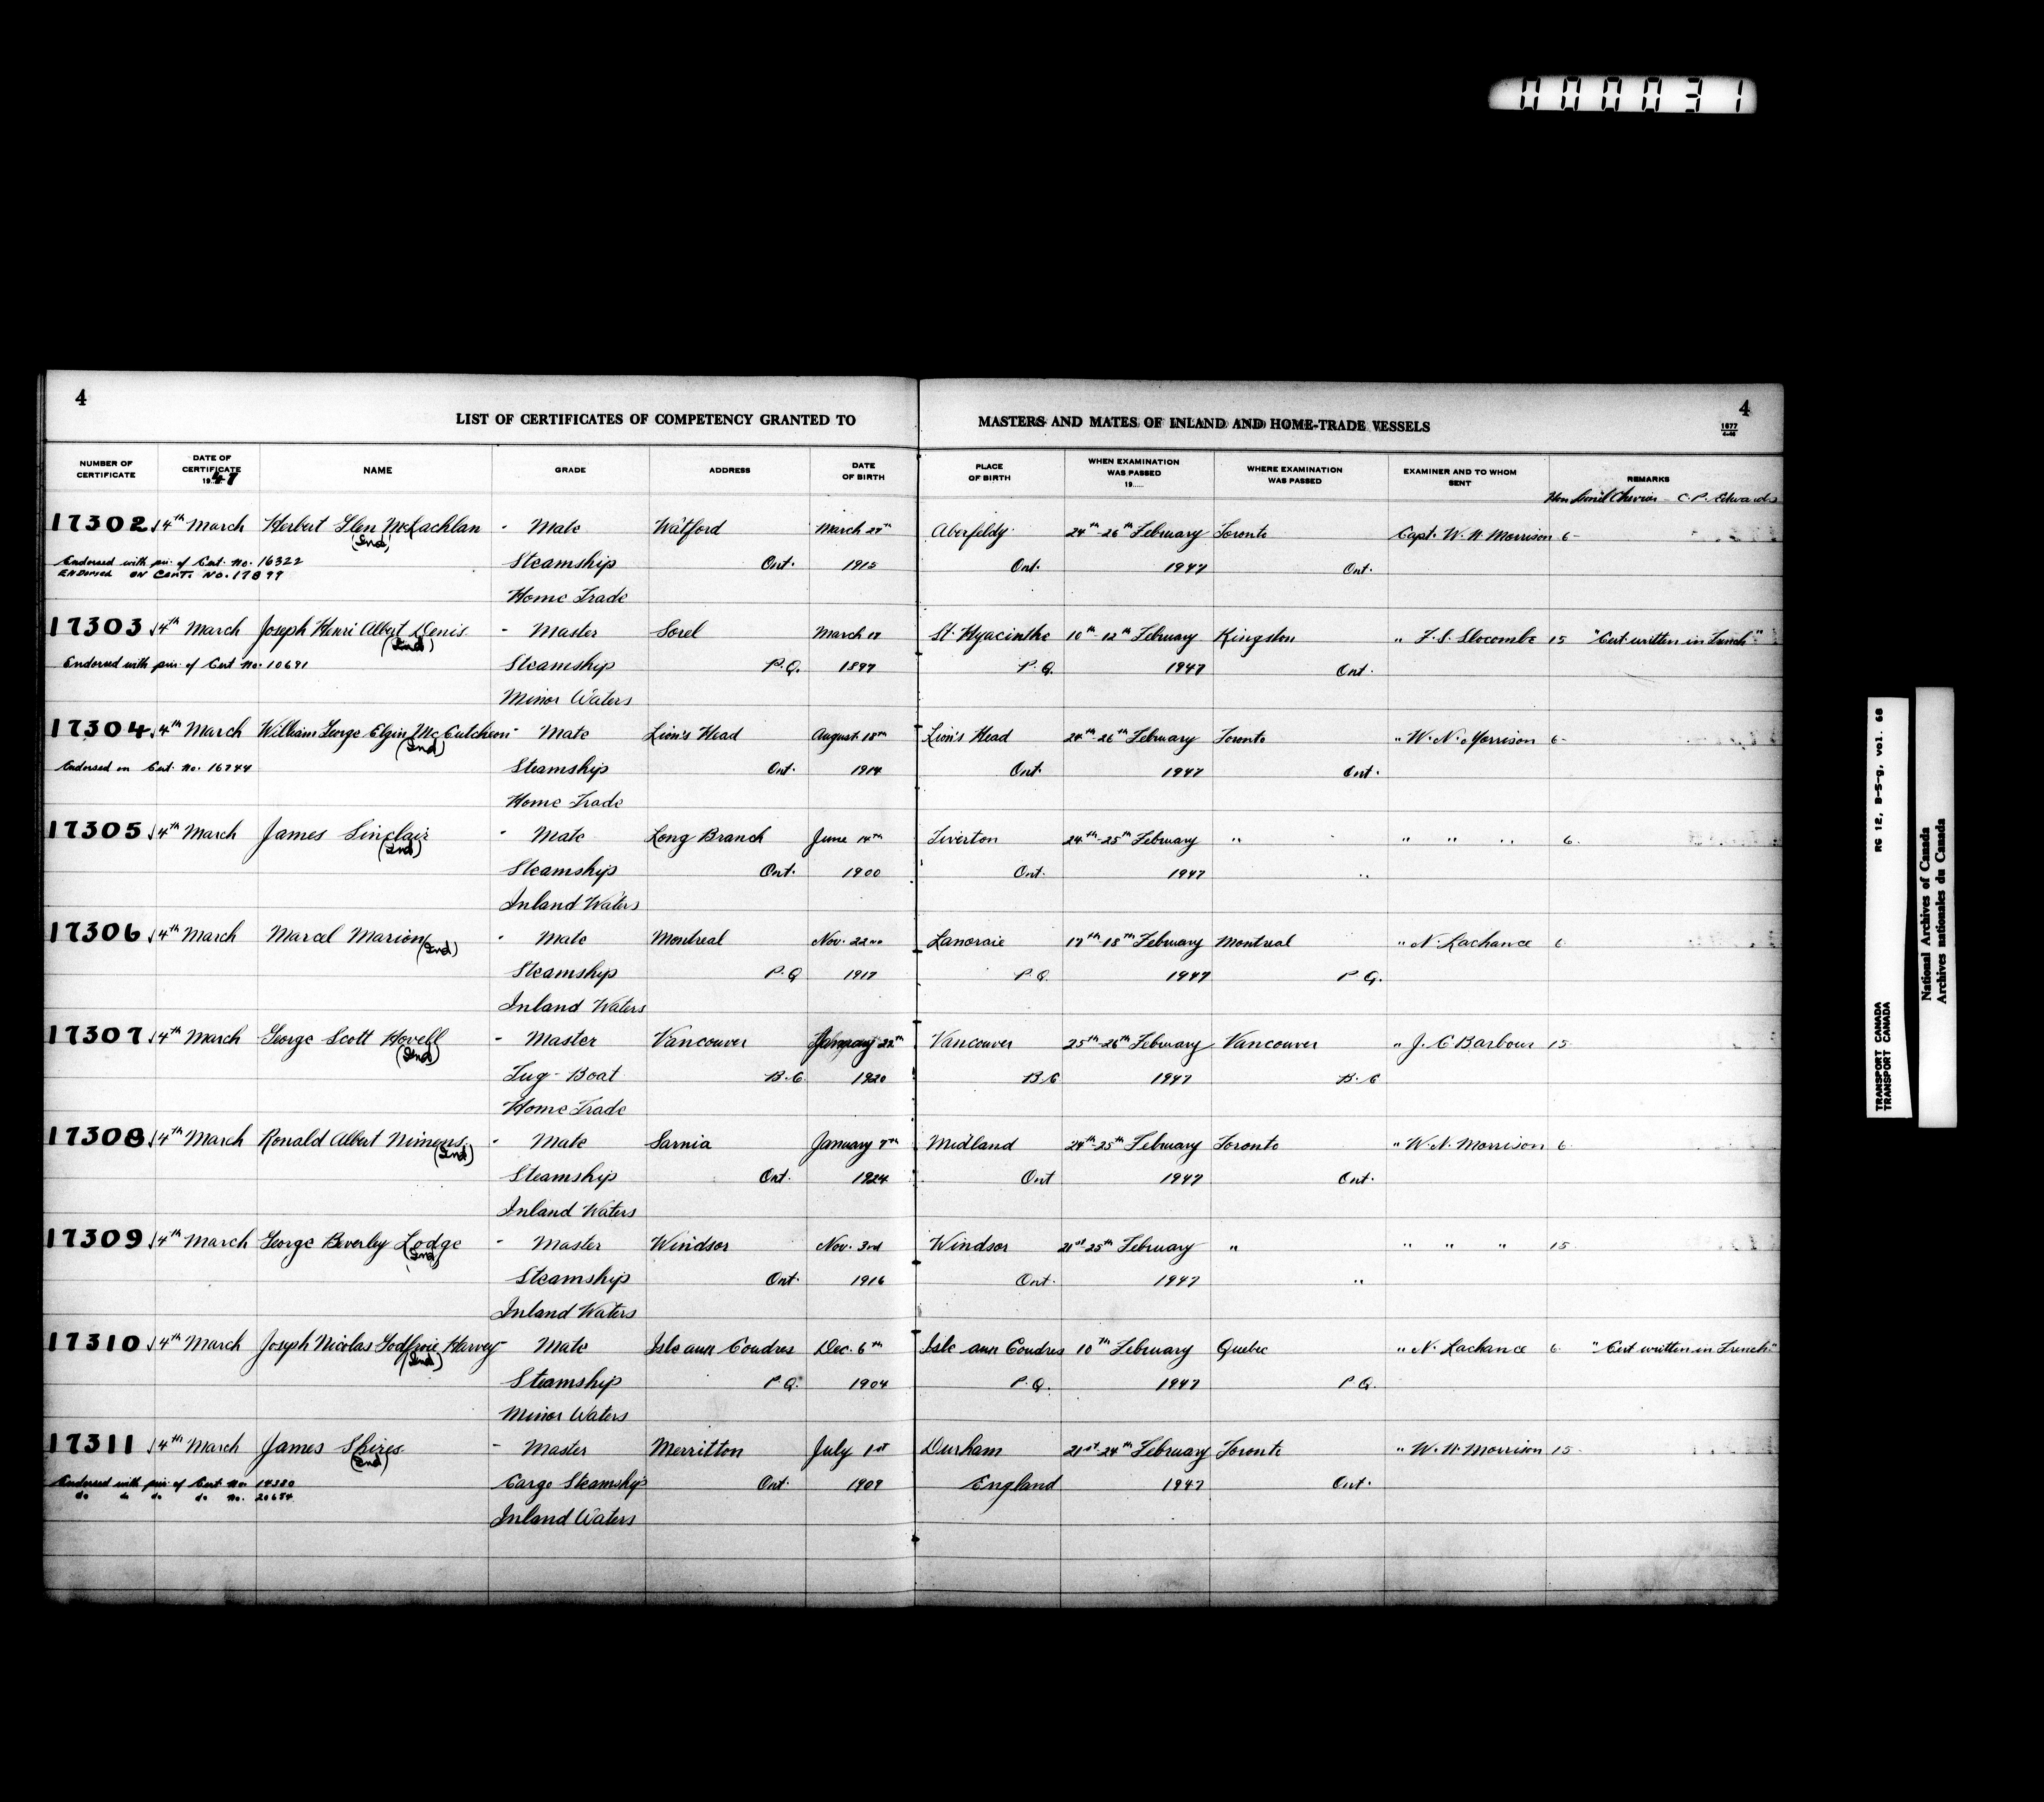 000031
4
LIST OF CERTIFICATES OF COMPETENCY GRANTED TO
MASTERS AND MATES OF INLAND AND HOME-TRADE VESSELS
4
1677
NUMBER OF CERTIFICATE
DATE OF CERTIFICATE 1947
NAME
GRADE
ADDRESS
DATE OF BIRTH
PLACE OF BIRTH
WHEN EXAMINATION WAS PASSED 19
WHERE EXAMINATION WAS PASSED
EXAMINER AND TO WHOM SENT
REMARKS
Hon Lionel Chevrier - C.P. Edwards
17302 4th March Herbert Glen McLachlan - Mate Watford March 24th Aberfeldy 24th-26th February Toronto Capt. W. N. Morrison 6-
(Ind)
Endorsed with pm. of Cert. No. 16322 Steamship Ont. 1915 Ont. 1947 Ont.
ENDORSED ON CERT. NO. 17899
Home Trade
17303 4th March Joseph Henri Albert Denis - Master Sorel March 18 St. Hyacinthe 10th-12th February Kingston " F. S. Slocombe 15 "Cert written in French"
(Ind)
Endorsed with pm. of Cert No. 10691 Steamship P.Q. 1897 P.Q. 1947 Ont.
Minor Waters
17304 4th March William George Elgin McCutcheon - Mate Lion's Head August 18th Lion's Head 24th-26th February Toronto " W. N. Morrison 6-
(Ind)
Endorsed on Cert. No. 16744 Steamship Ont. 1914 Ont. 1947 Ont.
Home Trade
17305 4th March James Sinclair - Mate Long Branch June 14th Tiverton 24th-25th February " " " " 6.
(Ind)
Steamship Ont. 1900 Ont. 1947 "
Inland Waters
17306 4th March Marcel Marion (Ind) - Mate Montreal Nov. 22nd Lanoraie 17th-18th February Montreal " N. Lachance 6
Steamship P.Q 1917 P.Q 1947 P.Q.
Inland Waters
17307 4th March George Scott Hovell - Master Vancouver January 22nd Vancouver 25th-26th February Vancouver " J. C Barbour 15
(Ind)
Tug-Boat B.C. 1920 B.C 1947 B.C
Home Trade
17308 4th March Ronald Albert Nimens - Mate Sarnia January 7th Midland 24th-25th February Toronto " W. N. Morrison 6
(Ind)
Steamship Ont. 1924 Ont 1947 Ont.
Inland Waters
17309 4th March George Beverley Lodge - Master Windsor Nov. 3rd Windsor 21st-25th February " " " " 15
(Ind)
Steamship Ont. 1916 Ont. 1947 "
Inland Waters
17310 4th March Joseph Nicolas Godfroie Harvey - Mate Isle aux Coudres Dec. 6th Isle aux Coudres 10th February Quebec " N. Lachance 6 "Cert written in French"
(Ind)
Steamship P.Q. 1904 P.Q. 1947 P.Q.
Minor Waters
17311 4th March James Shires - Master Merritton July 1st Durham 21st-24th February Toronto " W. N. Morrison 15
(Ind)
Endorsed with pm. of Cert No. 14380 Cargo Steamship Ont. 1909 England 1947 Ont.
do do do do No. 20684
Inland Waters
TRANSPORT CANADA RG 12, B-5-g, vol. 68
TRANSPORT CANADA
National Archives of Canada
Archives nationales du Canada